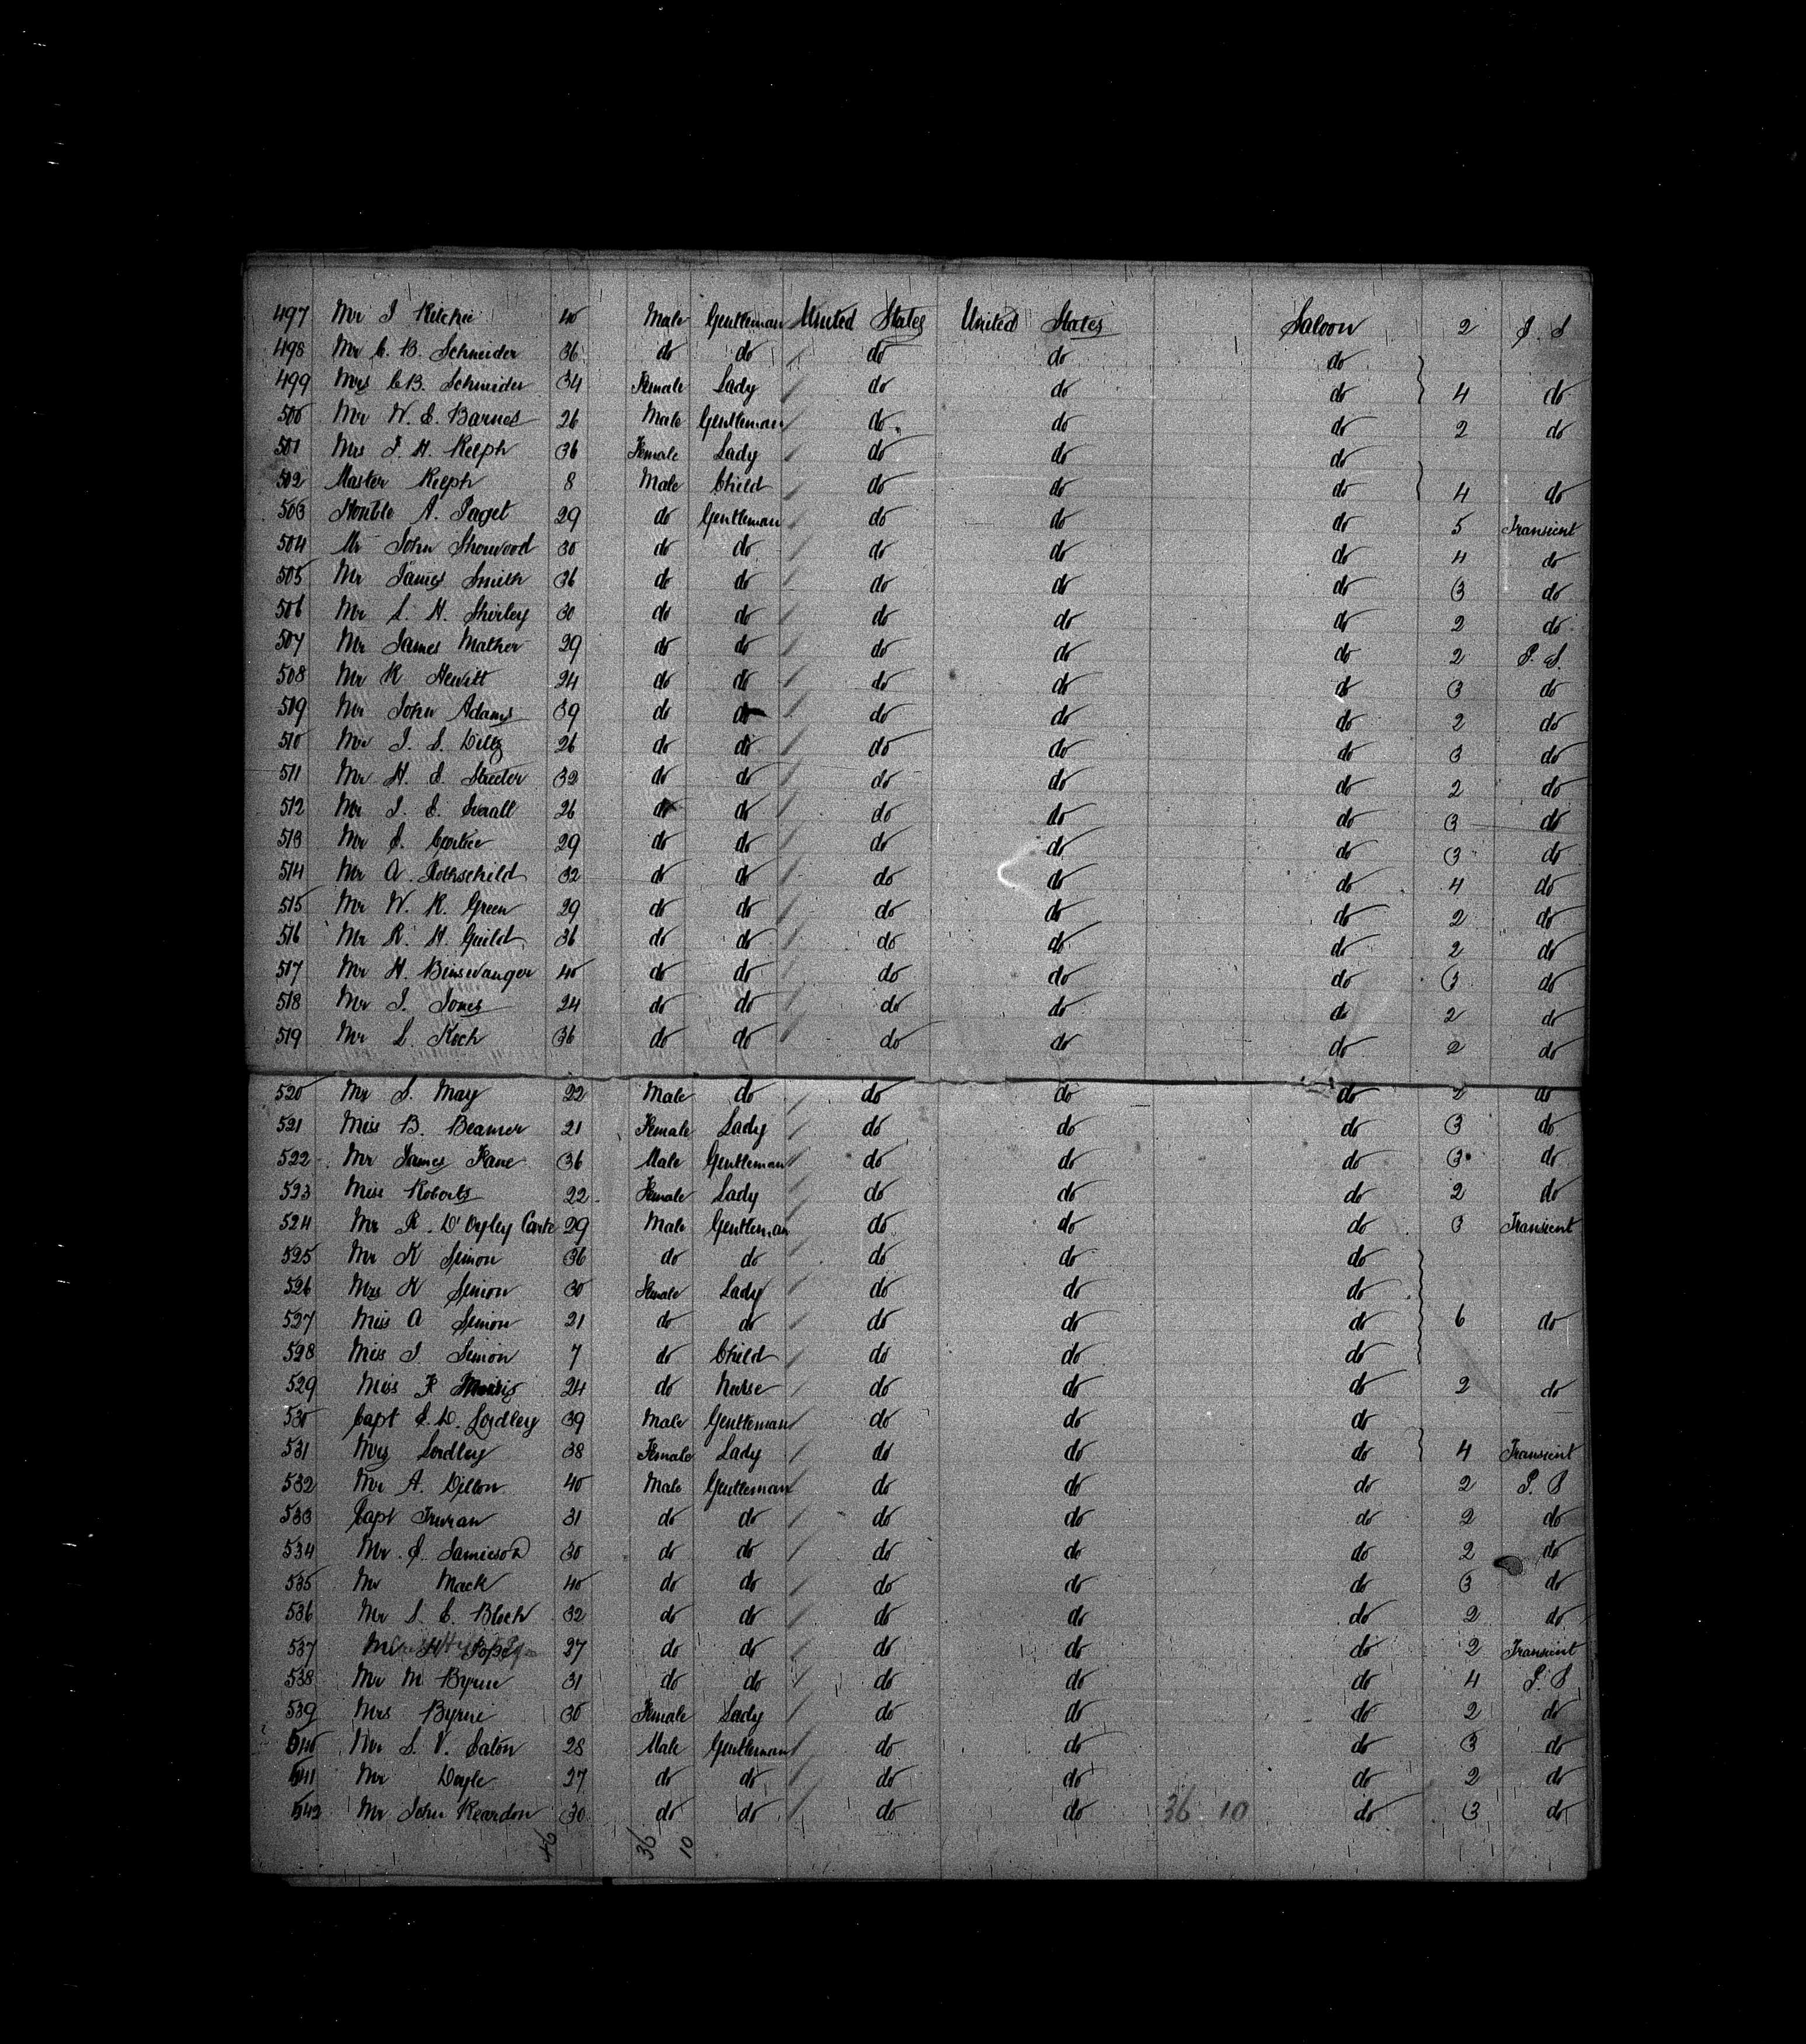 497 Mr J Ritchie 40 Male Gentleman United States United States Saloon 2 P. S
498 Mr C. B. Schneider 36 do do do do do
499 Mrs C B. Schneider 34 Female Lady do do do 4 do
500 Mr W. E. Barnes 26 Male Gentleman do do do 2 do
501 Mrs J. H. Relph 36 Female Lady do do do
502 Master Relph 8 Male Child do do do 4 do
503 Honble A. Paget 29 do Gentleman do do do 5 Transient
504 Mr John Sherwood 30 do do do do do 4 do
505 Mr James Smith 36 do do do do do 3 do
506 Mr L. H. Shirley 30 do do do do do 2 do
507 Mr James Mather 29 do do do do do 2 P. S.
508 Mr R Hewitt 24 do do do do do 3 do
509 Mr John Adams 39 do do do do do 2 do
510 Mr J. S. 26 do do do do do 3 do
511 Mr H. E. Streeter 32 do do do do do 2 do
512 Mr J. E. 26 do do do do do 3 do
513 Mr 29 do do do do do 3 do
514 Mr A. Rothschild 32 do do do do do 4 do
515 Mr W. R. Green 29 do do do do do 2 do
516 Mr R. H. Guild 36 do do do do do 2 do
517 Mr H. Binswanger 40 do do do do do 3 do
518 Mr J. Jones 24 do do do do do 2 do
519 Mr L Koch 36 do do do do do 2 do
520 Mr S. May 22 Male do do do do 2 do
521 Miss B. Beamer 21 Female Lady do do do 3 do
522 Mr James Kane 36 Male Gentleman do do do 3 do
523 Miss Roberts 22 Female Lady do do do 2 do
524 Mr R. D'Oyley Carte 29 Male Gentleman do do do 3 Transient
525 Mr K Simon 36 do do do do do
526 Mrs K Simon 30 Female Lady do do do
527 Miss A Simon 21 do do do do do 6 do
528 Miss J. Simon 7 do Child do do do
529 Miss F Morris 24 do Nurse do do do 2 do
530 Capt E. D. Lordley 39 Male Gentleman do do do
531 Mrs Lordley 38 Female Lady do do do 4 Transient
532 Mr A. Dillon 40 Male Gentleman do do do 2 P. S
533 Capt Truran 31 do do do do do 2 do
534 Mr Jamieson 30 do do do do do 2 do
535 Mr Mack 40 do do do do do 3 do
536 Mr S. E. Bloch 32 do do do do do 2 do
537 27 do do do do do 2 Transient
538 Mr M Byrne 31 do do do do do 4 P. S
539 Mrs Byrne 30 Female Lady do do do 2 do
540 Mr S. V. 28 Male Gentleman do do do 3 do
541 Mr Doyle 27 do do do do do 2 do
542 Mr John Reardon 30 do do do do 36 10 do 3 do
46 36 10